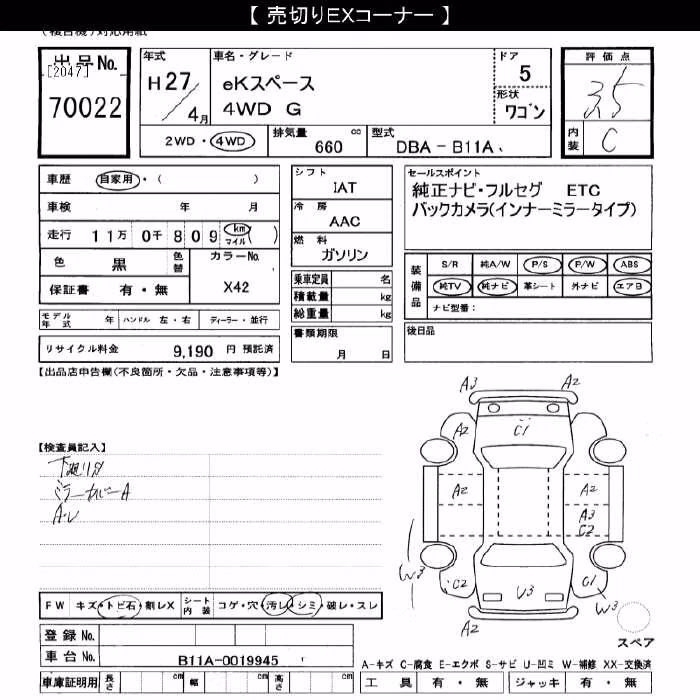 【 売切りEXコーナー 】
(複合機)対応用紙
出品No.
[2047]
70022
年式
H27/4月
車名・グレード
eKスペース
4WD G
ドア
5
形状
ワゴン
2WD・4WD
排気量 660 cc
型式 DBA－B11A
評価点
3.5
内装
C
車歴 自家用・( )
車検 年 月
走行 11万 0千 809 km マイル ( )
色 黒 色替
カラーNo. X42
保証書 有・無
モデル年式 年 ハンドル 左・右 ディーラー・並行
リサイクル料金 9,190 円 預託済
シフト
IAT
冷房
AAC
燃料
ガソリン
乗車定員 名
積載量 kg
総重量 kg
書類期限
月 日
セールスポイント
純正ナビ・フルセグ ETC
バックカメラ(インナーミラータイプ)
装備品
S/R 純A/W P/S P/W ABS
純TV 純ナビ 革シート 外ナビ エアB
ナビ型番：
後日品
【出品店申告欄(不良箇所・欠品・注意事項等)】
【検査員記入】
下廻りサビ
ミラーカバーA
A-レ
A3
A2
A2
C1
A2
A2
A3
C2
W3
C2
U3
C1
W3
A2
スペア
FW キズ・トビ石・割レX
シート内装 コゲ・穴・汚レ・シミ・破レ・スレ
登録No.
車台No. B11A-0019945
車庫証明用 長さ cm 幅 cm 高さ cm
A-キズ C-腐食 E-エクボ S-サビ U-凹ミ W-補修 XX-交換済
工具 有・無 ジャッキ 有・無